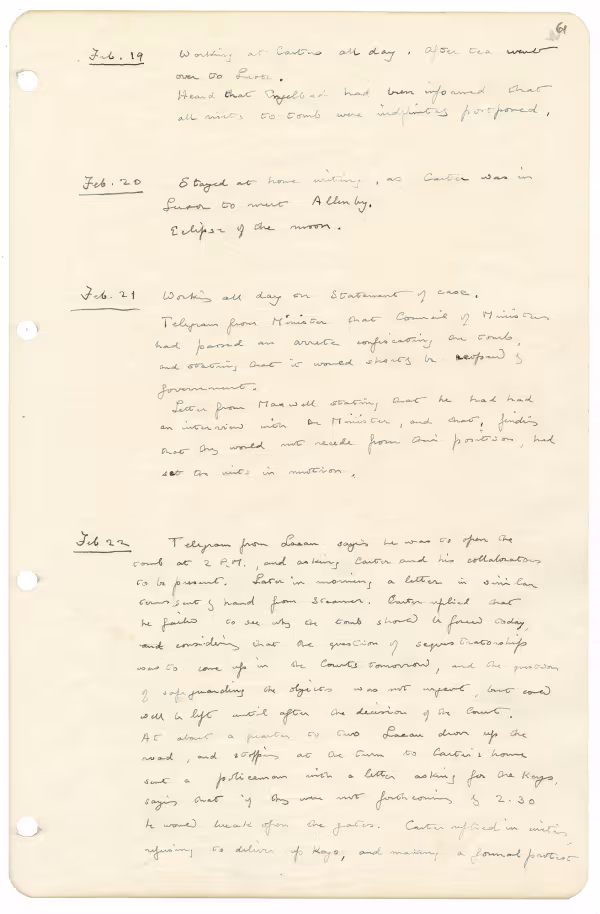 61
Feb. 19 Working at Carter's all day. After tea went
over to Luxor.
Heard that Engelbach had been informed that
all visits to tomb were indefinitely postponed.
Feb. 20 Stayed at home writing, as Carter was in
Luxor to meet Allenby.
Eclipse of the moon.
Feb. 21 Working all day on Statement of case.
Telegram from Minister that Council of Ministers
had passed an arrete confiscating the tomb,
and stating that it would shortly be reopened by
government.
Letter from Maxwell stating that he had had
an interview with the Minister, and that, finding
that they would not recede from their position, had
set the writs in motion.
Feb 22 Telegram from Lacau saying he was to open the
tomb at 2 P.M., and asking Carter and his collaborators
to be present. Later in morning a letter in similar
terms sent by hand from steamer. Carter replied that
he failed to see why the tomb should be forced today,
and considering that the question of sequestratorship
was to come up in the Courts tomorrow, and the question
of safeguarding the objects was not urgent, but could
well be left until after the decision of the Court.
At about a quarter to two Lacau drove up the
road, and stopping at the turn to Carter's house
sent a policeman with a letter asking for the keys,
saying that if they were not forthcoming by 2.30
he would break open the gates. Carter replied in writing,
refusing to deliver up keys, and making a formal protest